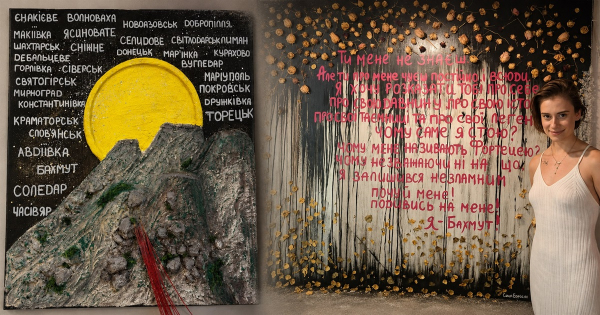 ЄНАКІЄВЕ ВОЛНОВАХА
НОВОАЗОВСЬК ДОБРОПІЛЛЯ
МАКІЇВКА ЯСИНОВАТЕ
ШАХТАРСЬК СНІЖНЕ СЕЛИДОВЕ СВІТЛОДАРСЬК ЛИМАН
ДЕБАЛЬЦЕВЕ ДОНЕЦЬК МАР'ЇНКА КУРАХОВО
ГОРЛІВКА СІВЕРСЬК ВУГЛЕДАР
СВЯТОГІРСЬК МАРІУПОЛЬ
МИРНОГРАД ПОКРОВСЬК
КОНСТАНТИНІВКА ДРУЖКІВКА
КРАМАТОРСЬК ТОРЕЦЬК
СЛОВ'ЯНСЬК
АВДІЇВКА
БАХМУТ
СОЛЕДАР
ЧАСІВ ЯР
Ти мене не знаєш
Але ти про мене чуєш постійно і всюди
Я хочу розказати тобі про себе
про свою рівнину про свою
про свої та про свої леген
Чому саме я стою?
Чому мене називають Фортецею?
Чому незважаючи ні на що
я залишився незламним
Почуй мене!
Подивись на мене!
Я - Бахмут!